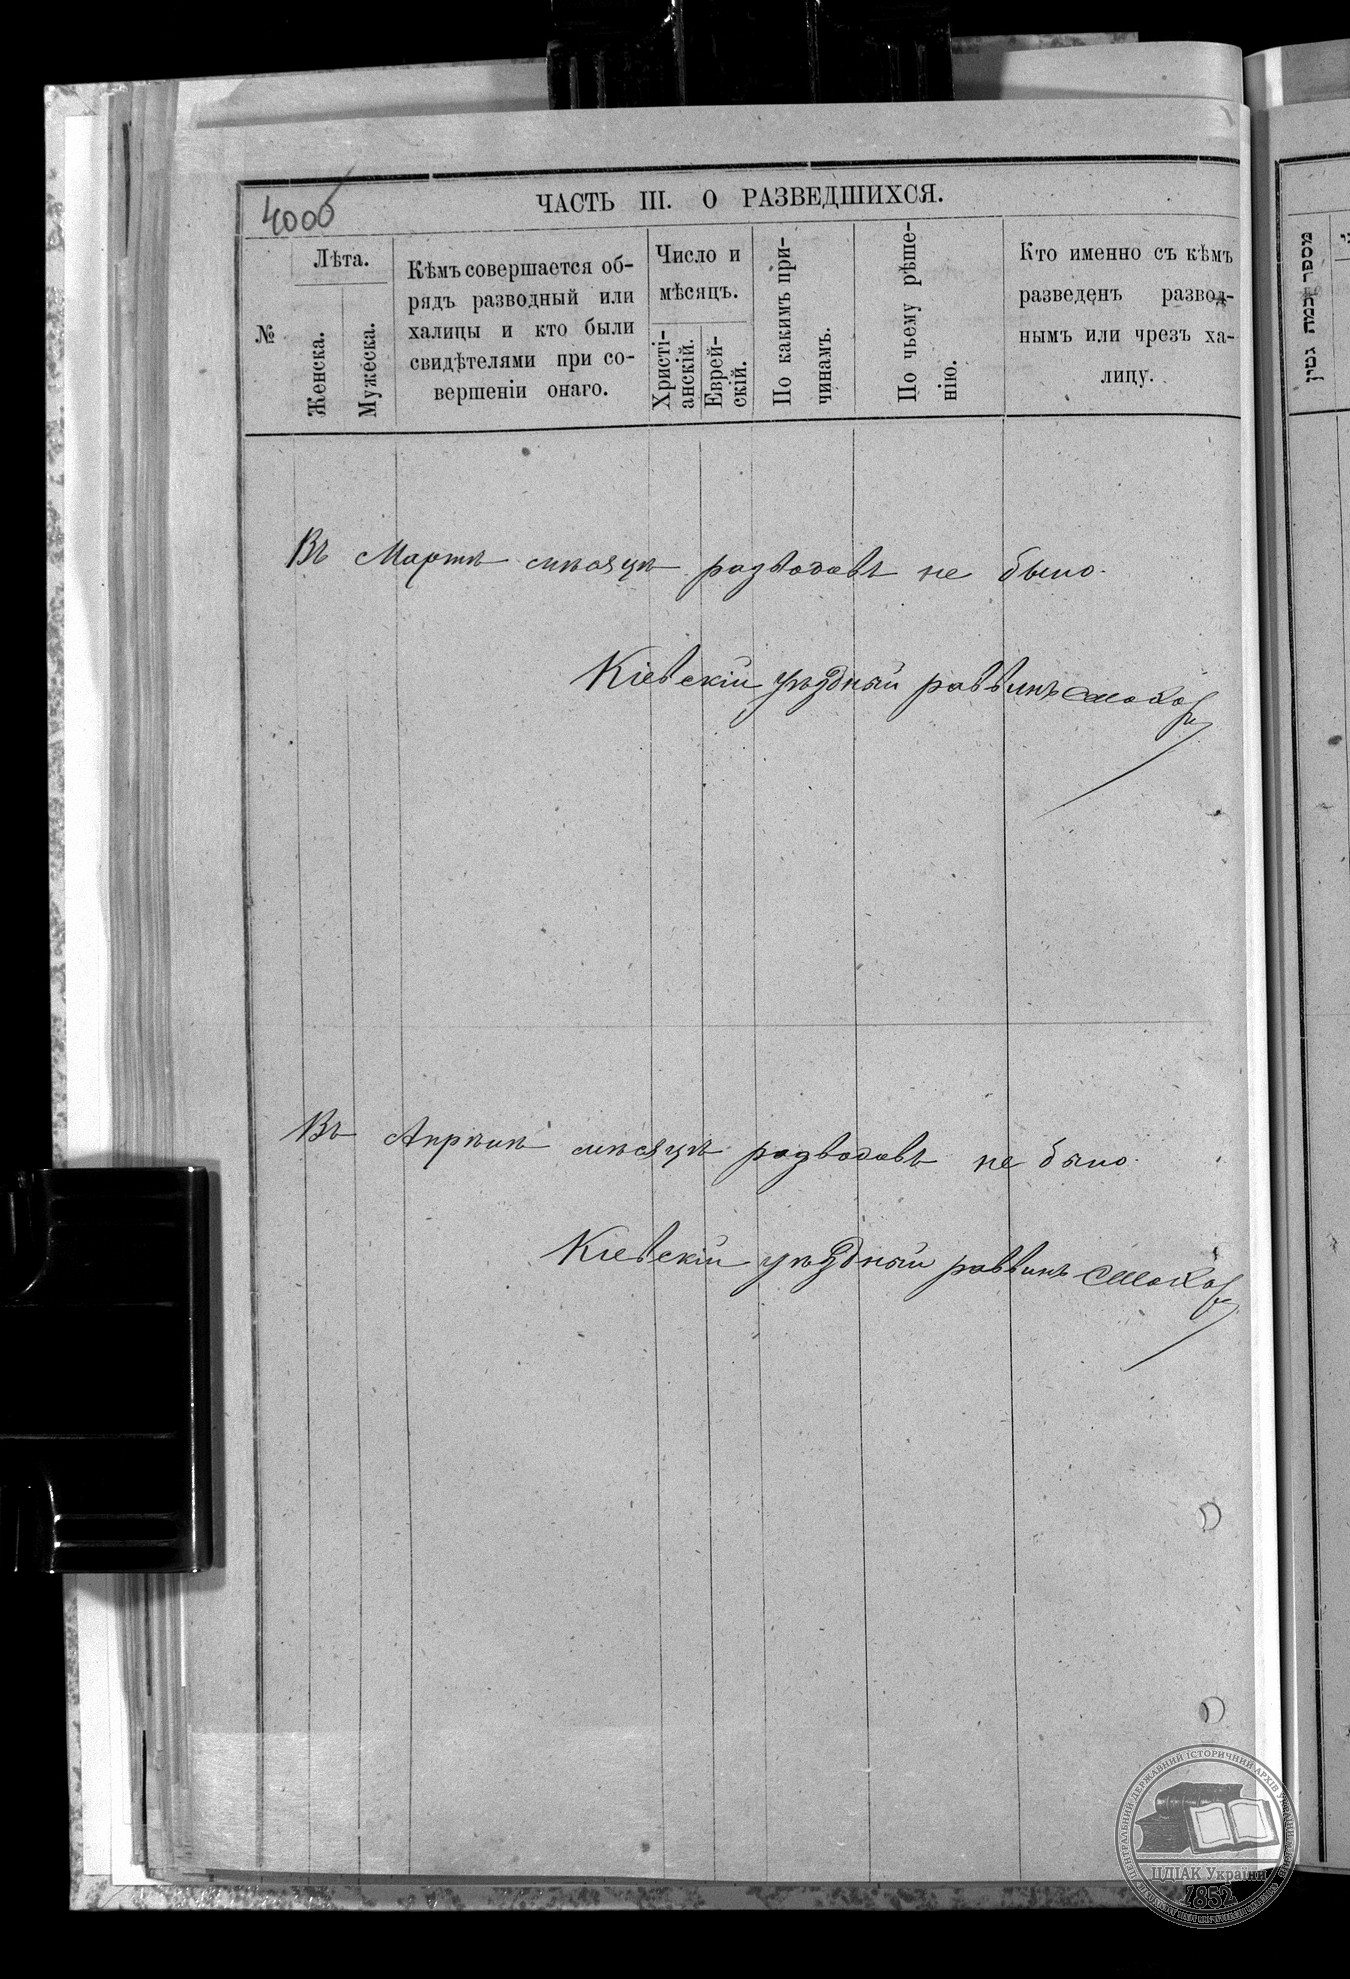 400б
ЧАСТЬ III. О РАЗВЕДШИХСЯ.
№
Лѣта.
Женска.
Мужеска.
Кѣмъ совершается об-
рядъ разводный или
халицы и кто были
свидѣтелями при со-
вершеніи онаго.
Число и
мѣсяцъ.
Христі-
анскій.
Еврей-
скій.
По какимъ при-
чинамъ.
По чьему рѣше-
нію.
Кто именно съ кѣмъ
разведенъ развод-
нымъ или чрезъ ха-
лицу.
מספר וכמה גטין
Въ Мартѣ мѣсяцѣ разводовъ не было.
Кіевскій уѣздный раввинъ
Въ Апрѣлѣ мѣсяцѣ разводовъ не было.
Кіевскій уѣздный раввинъ
ЦЕНТРАЛЬНИЙ ДЕРЖАВНИЙ ІСТОРИЧНИЙ АРХІВ УКРАЇНИ
ЦДІАК України
1852